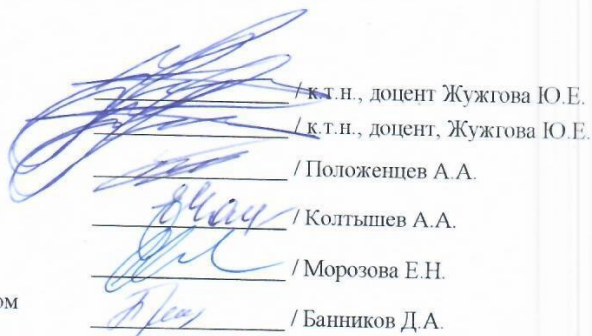 / к.т.н., доцент Жужгова Ю.Е.
/ к.т.н., доцент, Жужгова Ю.Е.
/ Положенцев А.А.
/ Колтышев А.А.
/ Морозова Е.Н.
ом
/ Банников Д.А.